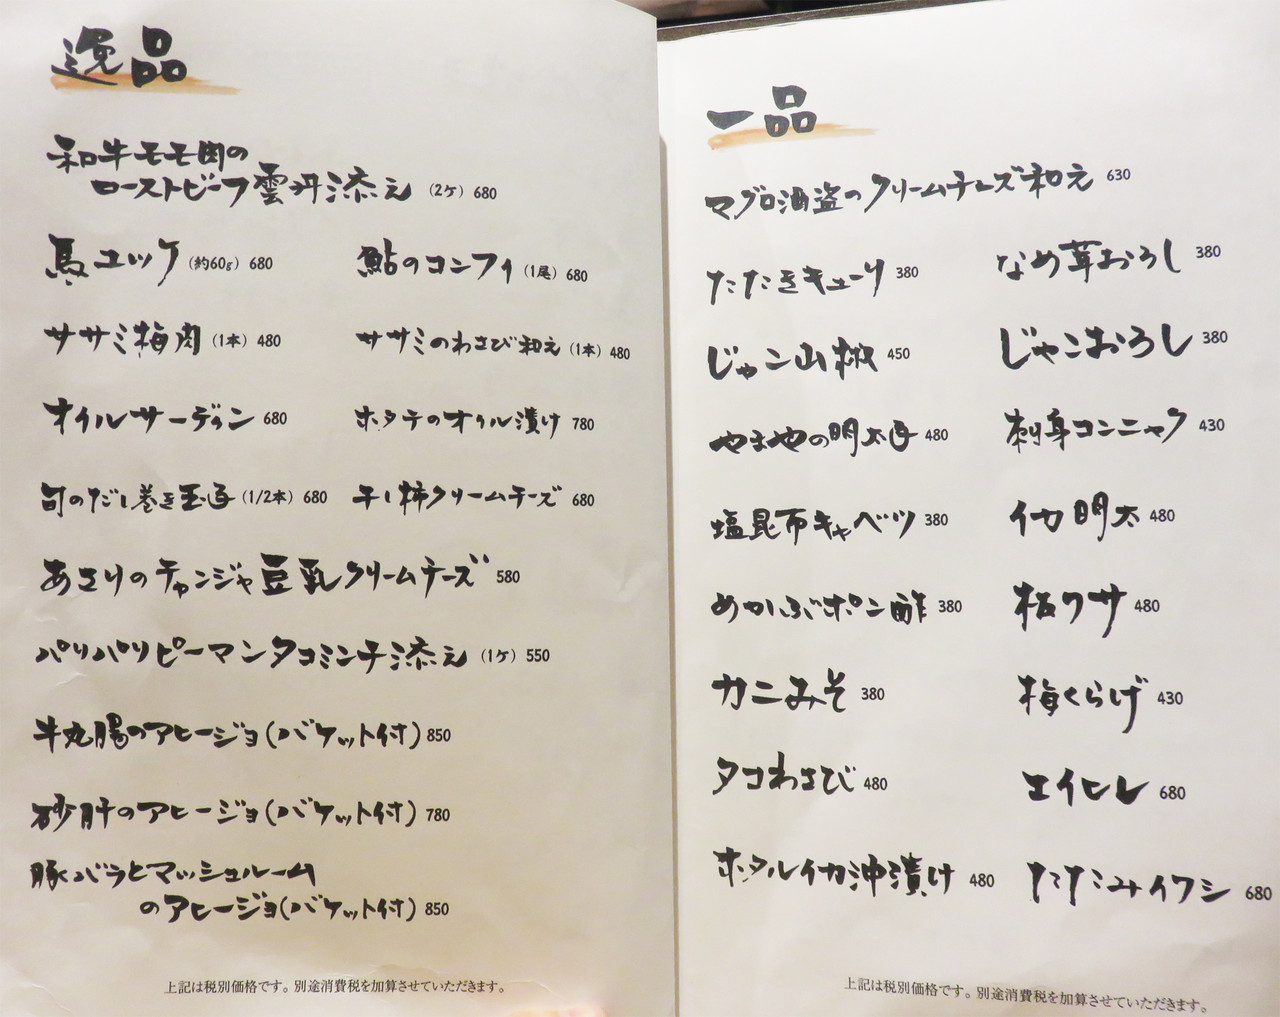 逸品
和牛モモ肉の
ローストビーフ雲丹添え (2ケ) 680
馬ユッケ (約60g) 680
鮎のコンフィ (1尾) 680
ササミ梅肉 (1本) 480
ササミのわさび和え (1本) 480
オイルサーディン 680
ホタテのオイル漬け 780
旬のだし巻き玉子 (1/2本) 680
干し柿クリームチーズ 680
あさりのチャンジャ豆乳クリームチーズ 580
パリパリピーマンタコミンチ添え (1ケ) 550
牛丸腸のアヒージョ(バケット付) 850
砂肝のアヒージョ(バケット付) 780
豚バラとマッシュルーム
のアヒージョ(バケット付) 850
上記は税別価格です。別途消費税を加算させていただきます。
一品
マグロ酒盗のクリームチーズ和え 630
たたきキューリ 380
なめ茸おろし 380
じゃン山椒 450
じゃこおろし 380
やまやの明太子 480
刺身コンニャク 430
塩昆布キャベツ 380
イカ明太 480
めかぶポン酢 380
板ワサ 480
カニみそ 380
梅くらげ 430
タコわさび 480
エイヒレ 680
ホタルイカ沖漬け 480
たたみイワシ 680
上記は税別価格です。別途消費税を加算させていただきます。